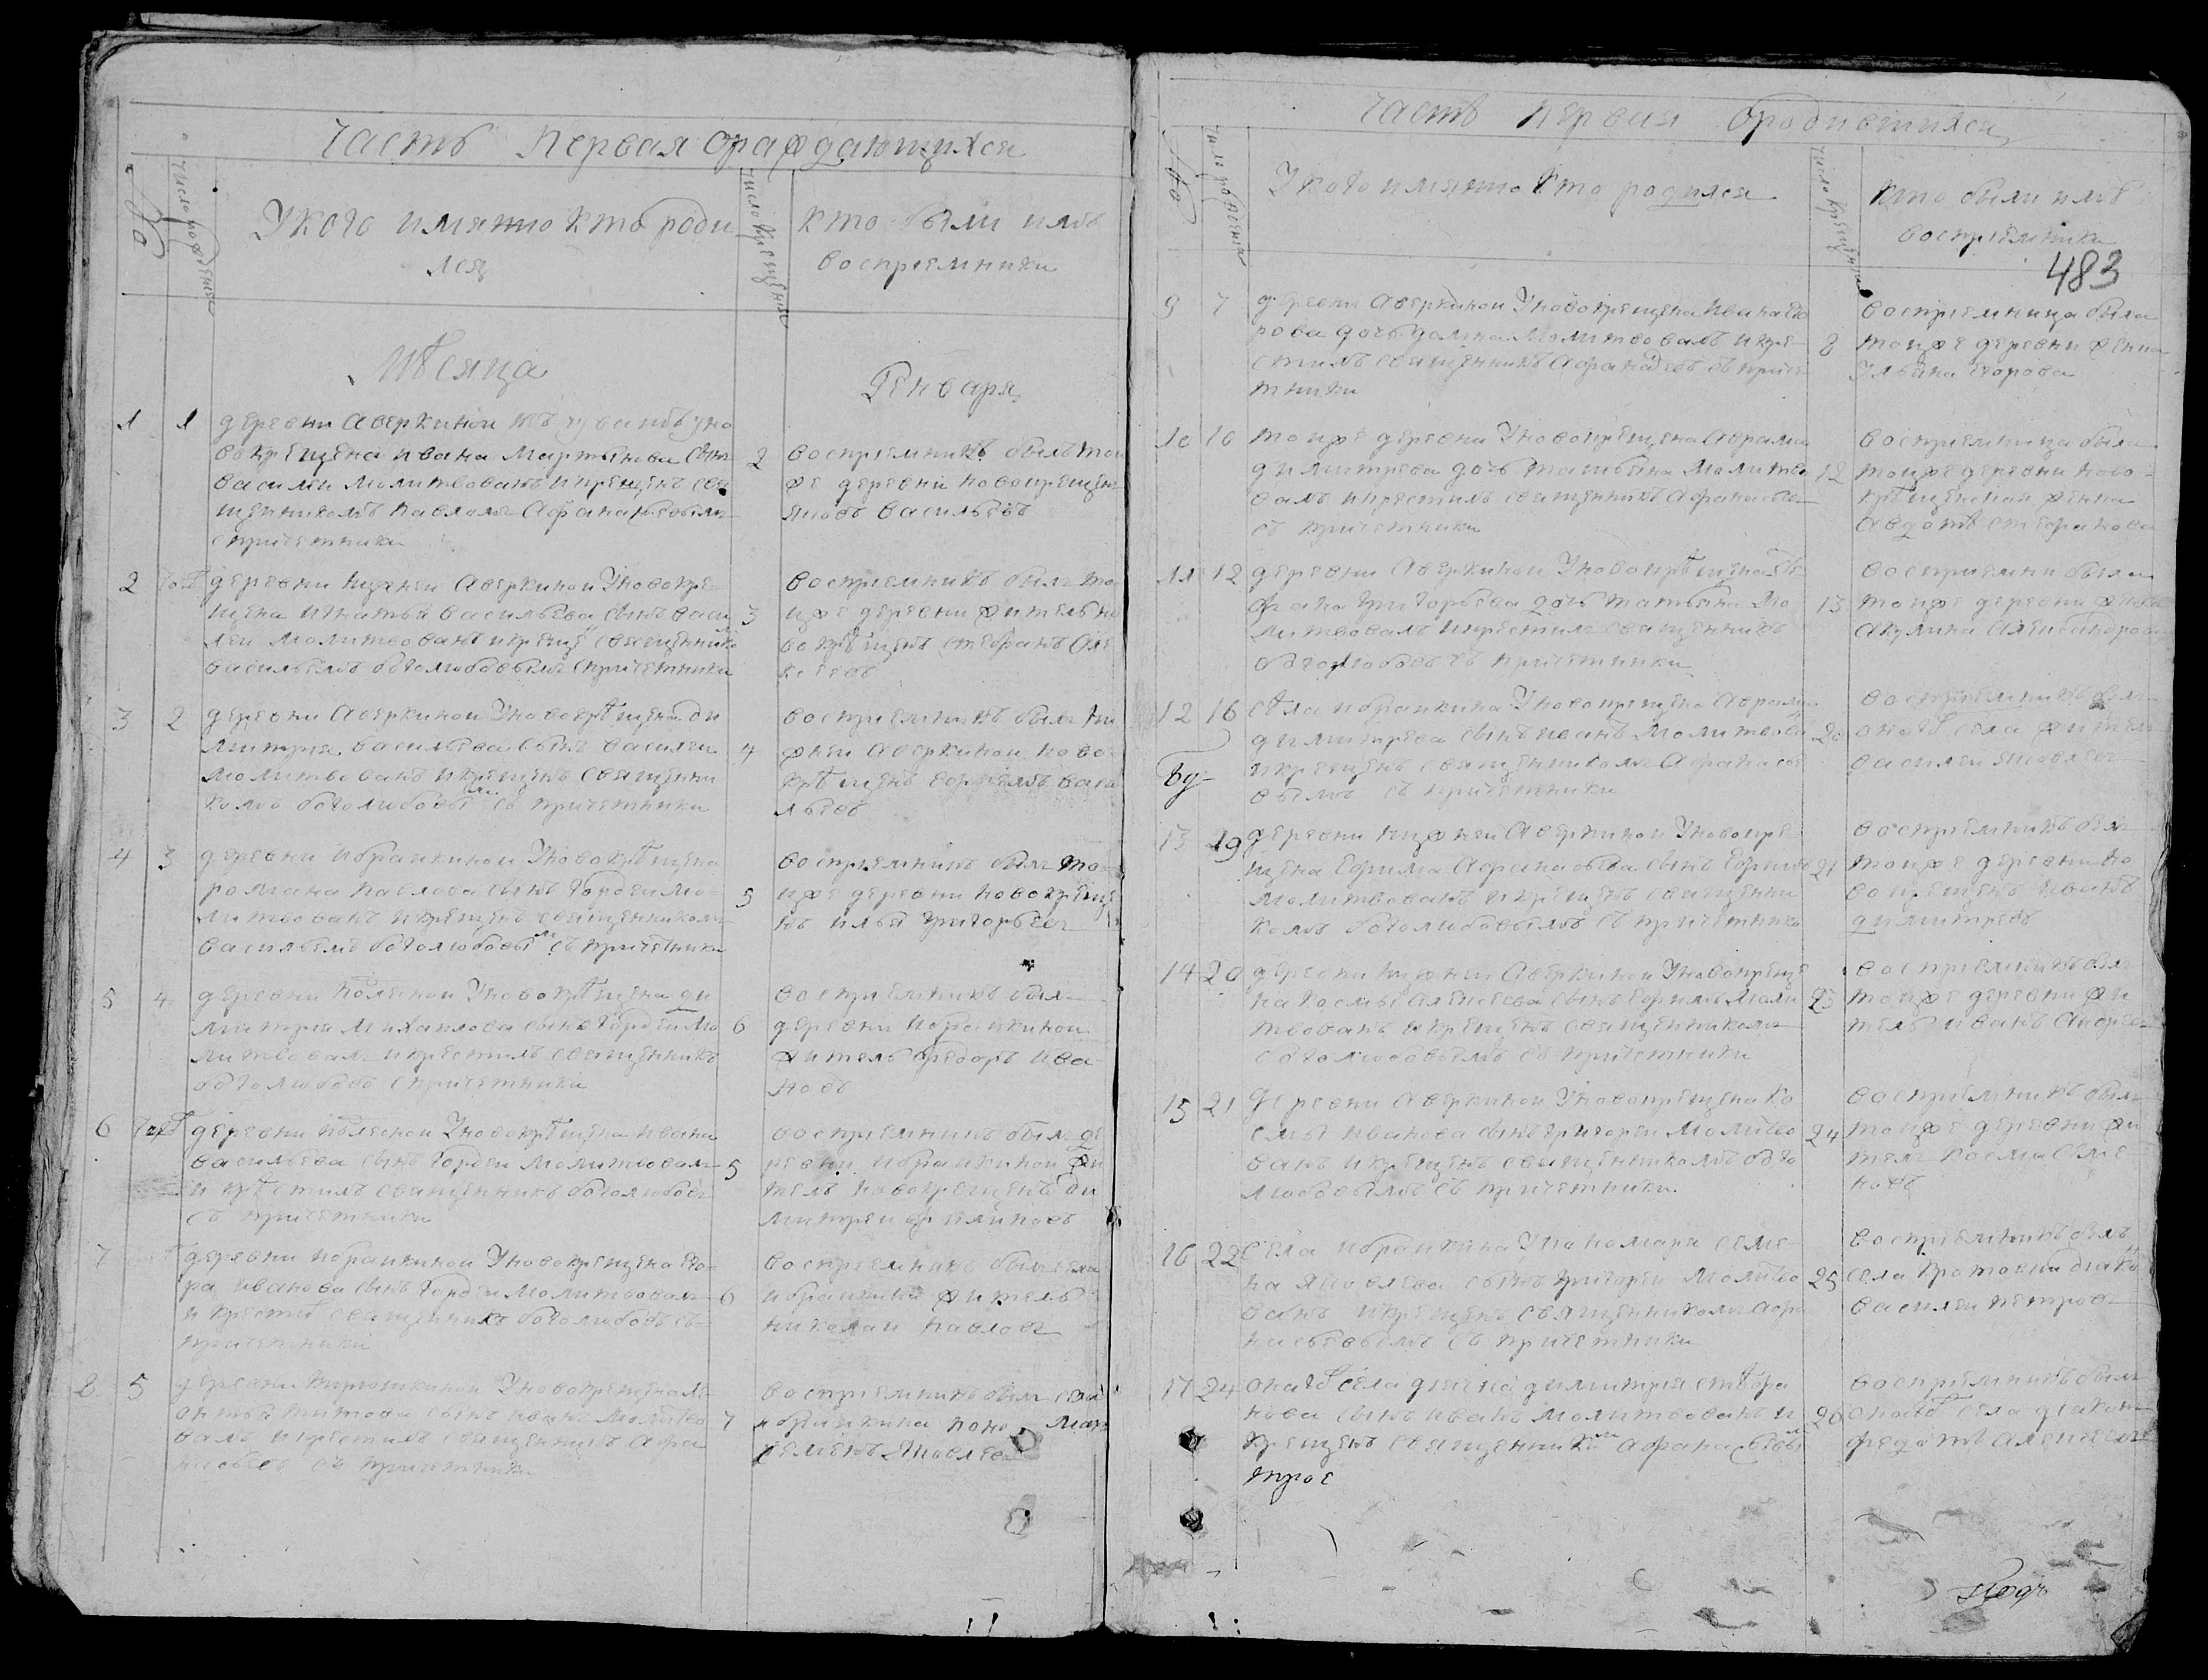 Часть первая ораждающихся
число рождения
У кого имянно кто роди
лся
число крещения
кто были имъ
восприемники
Мѣсяца
Генваря
1 1 деревни Аверкиной
вокрещена ивана Мартынова сынъ
василеи молитвованъ и крещенъ свя
щенникомъ павломъ Афанасьевымъ
с причетники
2 восприемникъ былъ тои
же деревни новокрещен
яковъ васильевъ
2 деревни нижнеи Аверкинои У новокре
щена игнатья васильева сынъ васи
леи молитвованъ и креще священнико
васильемъ боголюбовымъ с причетники
3 восприемникъ былъ то
иже деревни житель но
вокрѣщенъ стефанъ Але
ксеевъ
3 2 деревни Аверкинои У новокрѣщена ди
митрия васильева сынъ василеи
молитвованъ и крещенъ священни
комъ боголюбовы съ причетники
4 восприемникъ былъ ни
жнеи Аверкинои ново
крѣщенъ ефремъ васи
льевъ
4 3 деревни ибраикинои У новокрѣщена
романа павлова сынъ гордеи мо
литвованъ и крещенъ священникомъ
васильемъ боголюбовы съ причетники
5 восприемникъ былъ то
иже деревни новокреще
нъ илья григорьевъ
5 4 деревни У новокрѣщена ди
митрия Михаилова сынъ гордеи мо
литвовалъ и крестилъ священникъ
боголюбовъ с причетники
6 восприемникъ былъ
деревни ибраикинои
житель федоръ ива
новъ
6 деревни У новокрѣщена ивана
васильева сынъ гордеи молитвовалъ
и крѣстилъ священникъ боголюбовъ
съ причетники
5 восприемникъ былъ де
ревни ибраикинои жи
тель новокрещенъ ди
митреи филиповъ
7 деревни ибраикинои У новокрещена его
ра иванова сынъ гордеи молитвовалъ
и крести священникъ боголюбовъ съ
причетники
6 восприемникъ былъ села
ибраикина житель
николаи павловъ
8 5 деревни У новокрещена ле
онтья титова сынъ иванъ молитво
валъ и крестилъ священникъ Афа
насьевъ съ причетники
7 восприемникъ былъ села
ибраикина поно марь
семенъ Яковлевъ
Часть первая о родившихся
число рождения
У кого имянно кто родился
число крещения
кто были имъ
восприемники
483
9 7 деревни Аверкинои У новокрещена ивана его
рова дочь домна молитвовалъ и кре
стилъ священникъ Афанасьевъ съ приче
тники
8 восприемница была
тоиже деревни женка
Ульяна егорова
10 10 тоиже деревни У новокрещена Аврама
димитрева дочь татьяна молитво
валъ и крестилъ священникъ Афанасьев
съ причетники
12 восприемница была
тоиже деревни ново
крѣщенская женка
Авдотья стефанова
11 12 деревни Аверкинои У новокрѣщена
григорьева дочь татьяна мо
литвовалъ и крестилъ священникъ
боголюбовъ съ причетники
13 восприемни была
тоиже деревни женка
Акулина Александрова
12 16 села ибраикина У новокрещена Аврама
димитрева сынъ иванъ молитвова
и крещенъ священникомъ Афанасье
вымъ съ причетники
20 восприемникъ былъ
оногожъ села житель
василеи яковлевъ
13 19 деревни нижнеи Аверкинои У новокре
щена ефима Афанасьева сынъ ефремъ
молитвованъ и крещенъ священни
комъ боголюбовымъ съ причетники
21 восприемникъ былъ
тоиже деревни но
вокрещенъ иванъ
димитревъ
14 20 деревни нижнеи Аверкинои У новокреще
на космы Алексеева сынъ ефремъ моли
твованъ и крещенъ священникомъ
боголюбовымъ съ причетники
23 восприемникъ былъ
тоиже деревни жи
тель иванъ Андреевъ
15 21 Деревни Аверкинои У новокрещена ко
смы иванова сынъ григореи молитво
ванъ и крещенъ священникомъ бого
любовымъ съ причетники
24 восприемникъ былъ
тоиже деревни жи
тель косма семе
новъ
16 22 Села ибраикина У пономаря семе
на яковлева сынъ григореи молитво
ванъ и крещенъ священникомъ афа
насьевымъ съ причетники
25 восприемникъ былъ
села кротовки диако
василеи петровъ
17 24 оногожъ села дьячка димитрия стефа
нова сынъ иванъ молитвованъ и
крещенъ священнико афанасьевы
26 восприемникъ былъ
оногожъ села диаконъ
федотъ алексеевъ